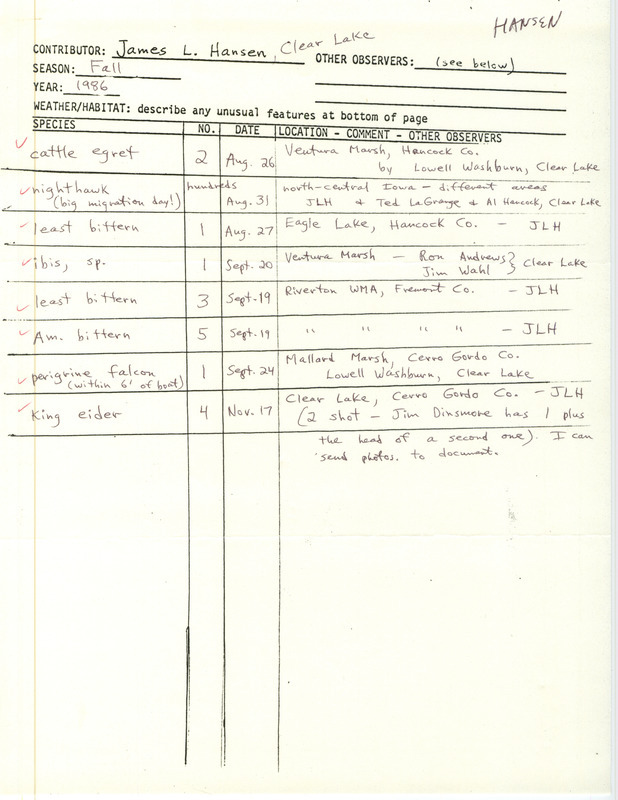 HANSEN
CONTRIBUTOR: James L. Hansen, Clear Lake
OTHER OBSERVERS: (see below)
SEASON: Fall
YEAR: 1986
WEATHER/HABITAT: describe any unusual features at bottom of page
SPECIES NO. DATE LOCATION - COMMENT - OTHER OBSERVERS
cattle egret 2 Aug. 26 Ventura Marsh, Hancock Co.
by Lowell Washburn, Clear Lake
nighthawk hundreds Aug. 31 north-central Iowa - different areas
(big migration day!) JLH & Ted LaGrange & Al Hancock, Clear Lake
least bittern 1 Aug. 27 Eagle Lake, Hancock Co. - JLH
ibis, sp. 1 Sept. 20 Ventura Marsh - Ron Andrews } Clear Lake
Jim Wahl
least bittern 3 Sept. 19 Riverton WMA, Fremont Co. - JLH
Am. bittern 5 Sept. 19 " " " " - JLH
perigrine falcon 1 Sept. 24 Mallard Marsh, Cerro Gordo Co.
(within 6' of boat) Lowell Washburn, Clear Lake
King eider 4 Nov. 17 Clear Lake, Cerro Gordo Co. - JLH
(2 shot - Jim Dinsmore has 1 plus
the head of a second one). I can
send photos. to document.